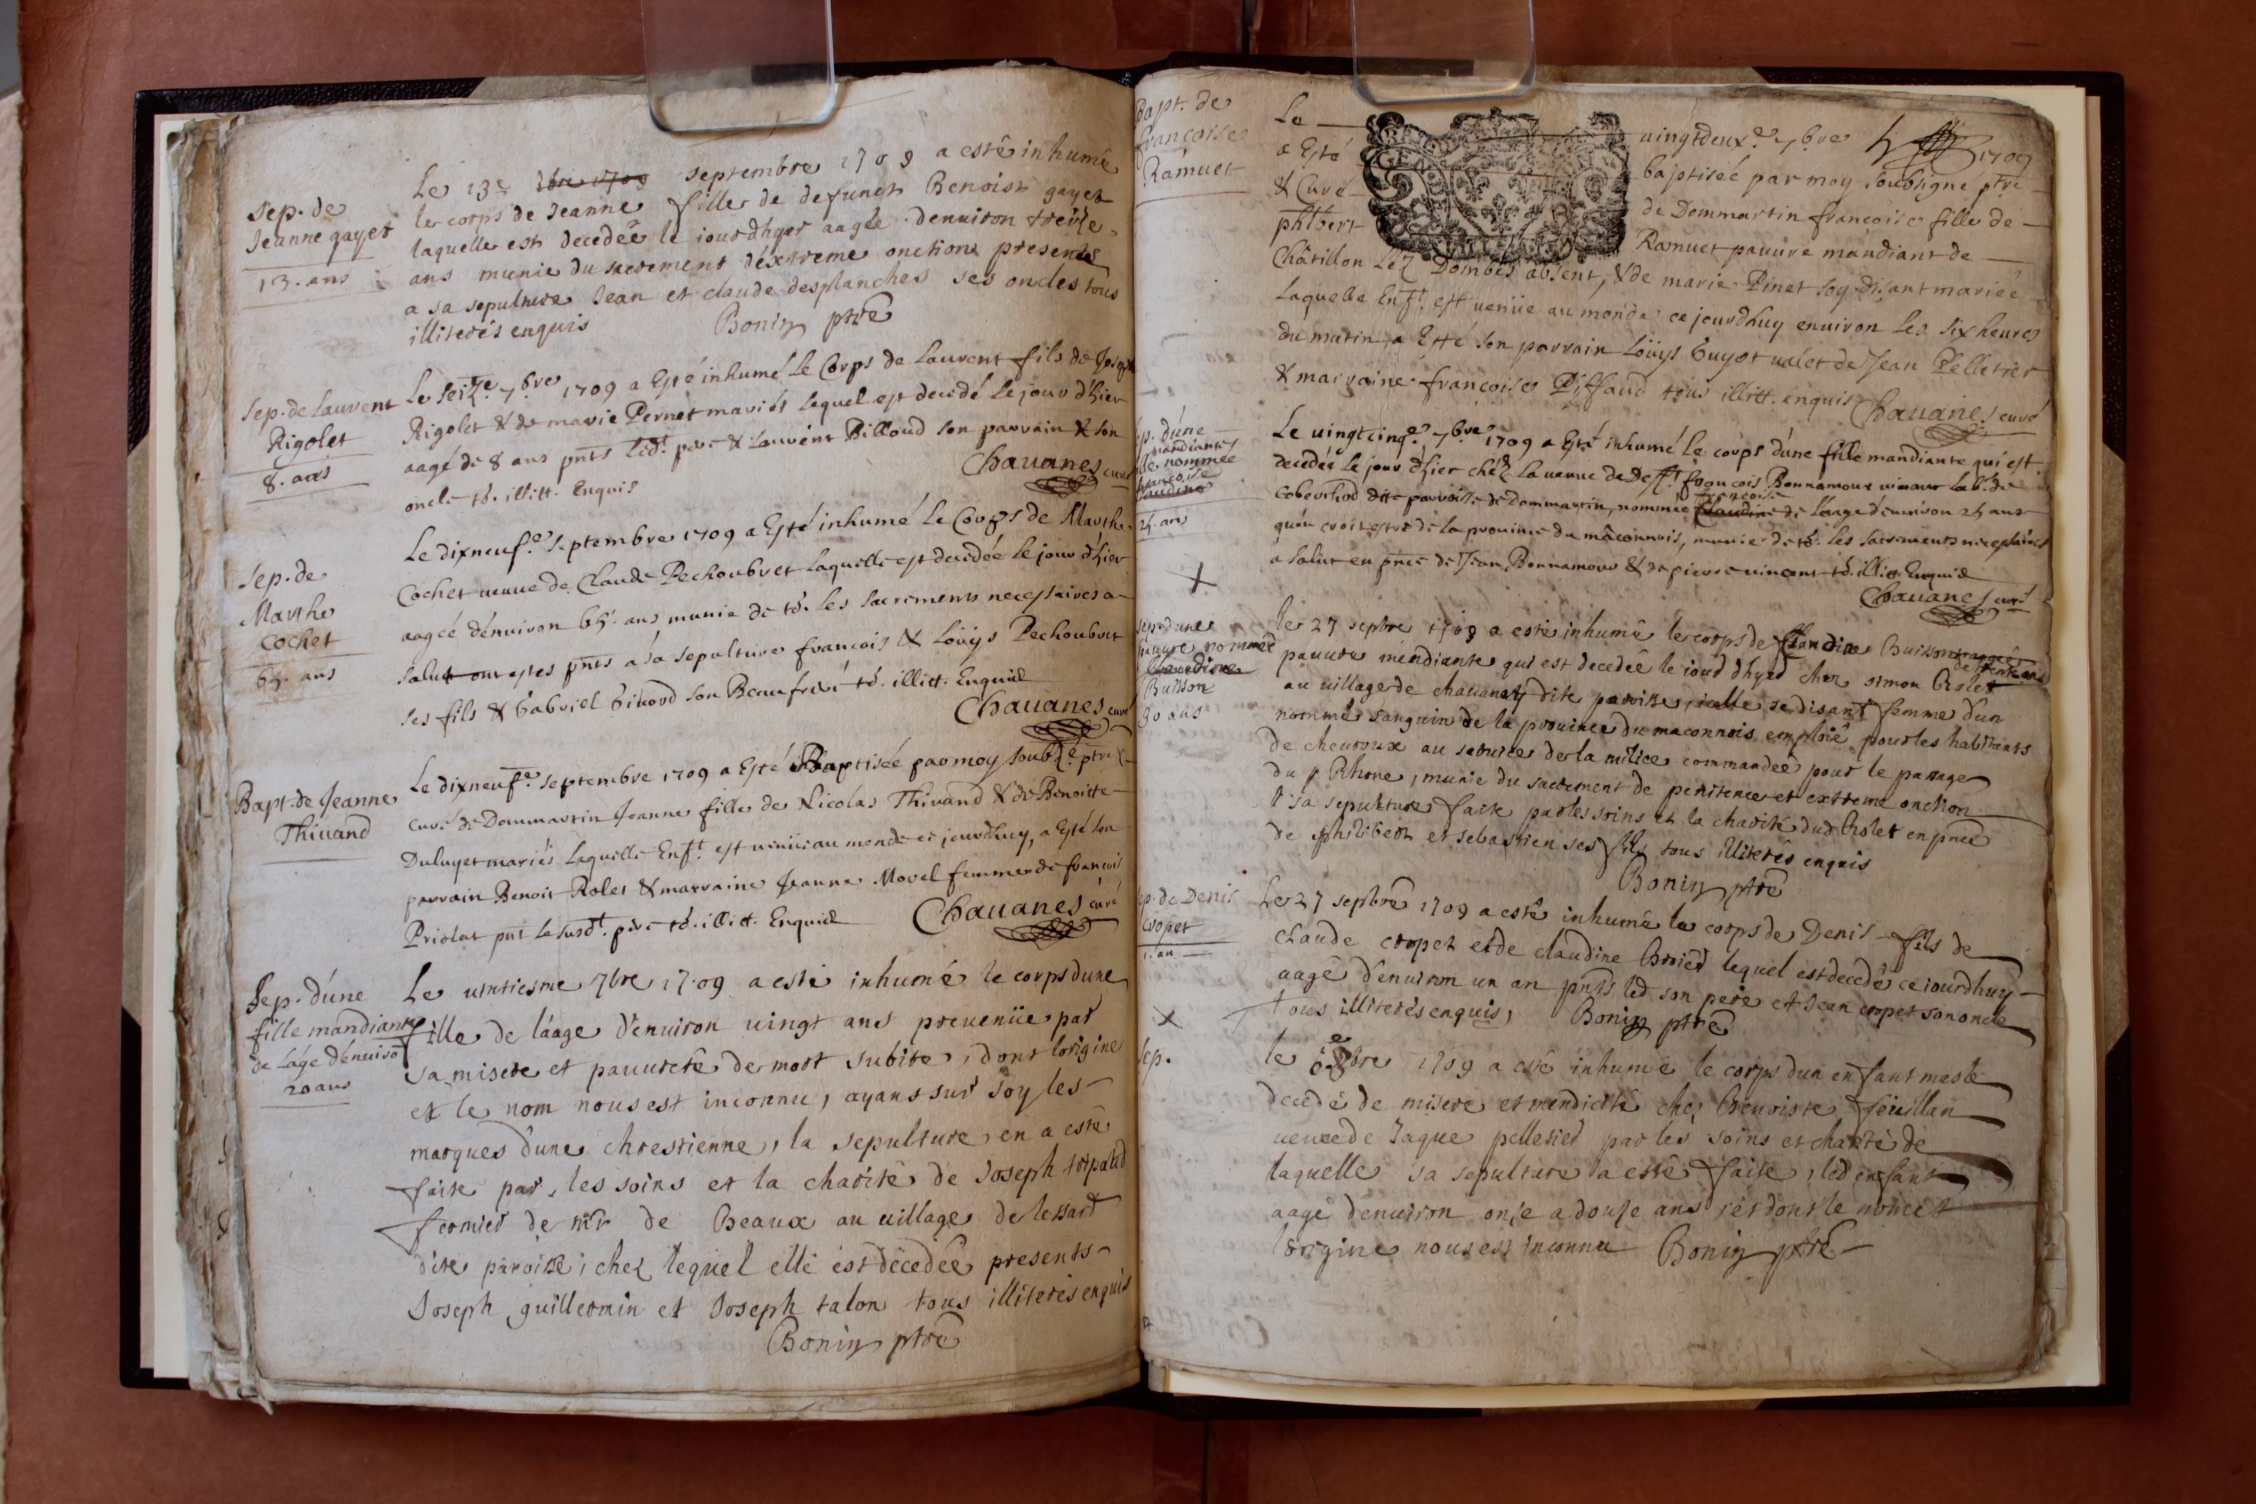 Sep. de
Jeanne gayet
13. ans
Le 13e septembre 1709 a esté inhumé
le corps de Jeanne fille de defunct Benoist gayet
laquelle est decedée le iourdhyer aagée denuiron treize
ans munie du sacrement déxtreme onction presents
a sa sepulture Jean et claude desplanches ses oncles tous
illiterés enquis Bonin ptre
Sep. de Laurent
Rigolet
8. ans
Le seize. 7bre 1709 a Esté inhumé Le Corps de Laurent fils de Joseph
Rigolet & de marie Pernet mariés lequel est decedé le jour d'hier
aagé de 8 ans pnts led.t pere & Laurent Billoud son parrain & son
oncle ts. illitt. Enquis Chauanes curé
Sep. de
Marthe
Cochet
65. ans
Le dixneuf.e septembre 1709 a Esté inhumé Le Corps de Marthe
Cochet veuue de Claude Pechoubret laquelle est decedée le jour d'hier
aagée d'enuiron 65. ans munie de ts. les sacrements necessaires a
salut ont estes pnts a sa sepulture francois & Loüys Pechoubret
ses fils & Gabriel Giuord son Beaufrere ts. illitt. Enquis
Chauanes curé
Bapt. de Jeanne
Thiuand
Le dixneuf.e septembre 1709 a Esté Baptisée par moy soubz.e ptre &
curé de Dommartin Jeanne fille de Nicolas Thiuand & de Benoitte
Duluyet mariés Laquelle Enft. est veniie au monde ce jourdhuy, a Esté son
parrain Benoit Rolet & marraine Jeanne Morel femme de francois
Priolat pnt le susd.t pere ts. illitt. Enquis Chauanes curé
Sep. d'une
fille mandiante
de l'age d'enuirõ
20 ans
Le vintiesme 7bre 1709 a esté inhumé le corps dune
fille de láage d'enuiron uingt ans preuenüe par
sa misere et pauureté de mort subite, dont lorigine
et le nom nous est inconnu, ayans sur soy les
marques d'une chrestienne, la sepulture en a esté
faite par les soins et la charité de Joseph torpaud
fermier de mr de Beaux au uillage de lessard
dite paroisse, chez lequel elle est decedée presents
Joseph guillermin et Joseph talon tous illiterés enquis
Bonin ptre
Bapt. de
francoise
Ramuet
Le uingtdeux.e 7bre 1709
a Esté baptisée par moy soubsigné ptre
& Curé de Dommartin francoise fille de
philbert Ramuet pauure mandiant de
Châtillon Lez Dombes absent, & de marie Pinet soy disant mariée
Laquelle Enft. est veniie au monde ce jourdhuy enuiron les six heures
du matin a Esté son parrain Loüys Guyot ualet de Jean Pelletier
& marraine francoise Piffaud tous illitt. enquis Chauanes curé
Sep. d'une
mandiante
nommée
francoise
Claudine
25. ans
Le uingtcinq.e 7bre 1709 a Esté inhumé le corps d'une fille mandiante qui est
decedée le jour d'hier chéz la ueuue de deff.t francois Bonnamour
dite parroisse de Dommartin, nommée francoise Claudine de l'aage d'enuiron 25 ans
qu'on croit estre de la prouince du mâconnois, munie de ts. les sacrements necessaires
a salut en pnce de Jean Bonnamour & de pierre uincent ts. illitt. Enquis
Chauanes curé
X
sep. d'une
pauure nommée
Claudine
Buisson
30 ans
Le 27 septbre 1709 a esté inhumé le corps de Claudine Buisson aageé
de trente ans
pauure mendiante qui est decedée le iourd'hyer chez simon Brolet
au uillage de chauanaty dite paroisse, icelle se disant femme d'un
nommé sanguin de la prouince du maconnois emploié pour les habitants
de cheuroux au seruice de la milice commandeé pour le passage
du Rhone, munie du sacrement de penitence et extreme onction
& sa sepulture faite par les soins et la charité dud Brolet en pnce
de philibert et sebastien ses fils tous illiterés enquis
Bonin ptre
Sep. de Denis
cropet
1. an
Le 27 septbre 1709 a esté inhumé le corps de Denis fils de
claude cropet et de claudine Broier lequel est decedé ce iourdhuy
aagé d'enuiron un an pnts led. son pere et Jean cropet son oncle
tous illiterés enquis, Bonin ptre
X
Sep.
le 8bre 1709 a esté inhumé le corps dun enfant masle
decedé de misere et mendicité chez Benoiste feuillan
ueuue de Jaque pelletier par les soins et charité de
laquelle sa sepulture a esté faite, led enfant
aagé denuiron onze a douze ans, et dont le nom et
l'origine nous est inconnu Bonin ptre